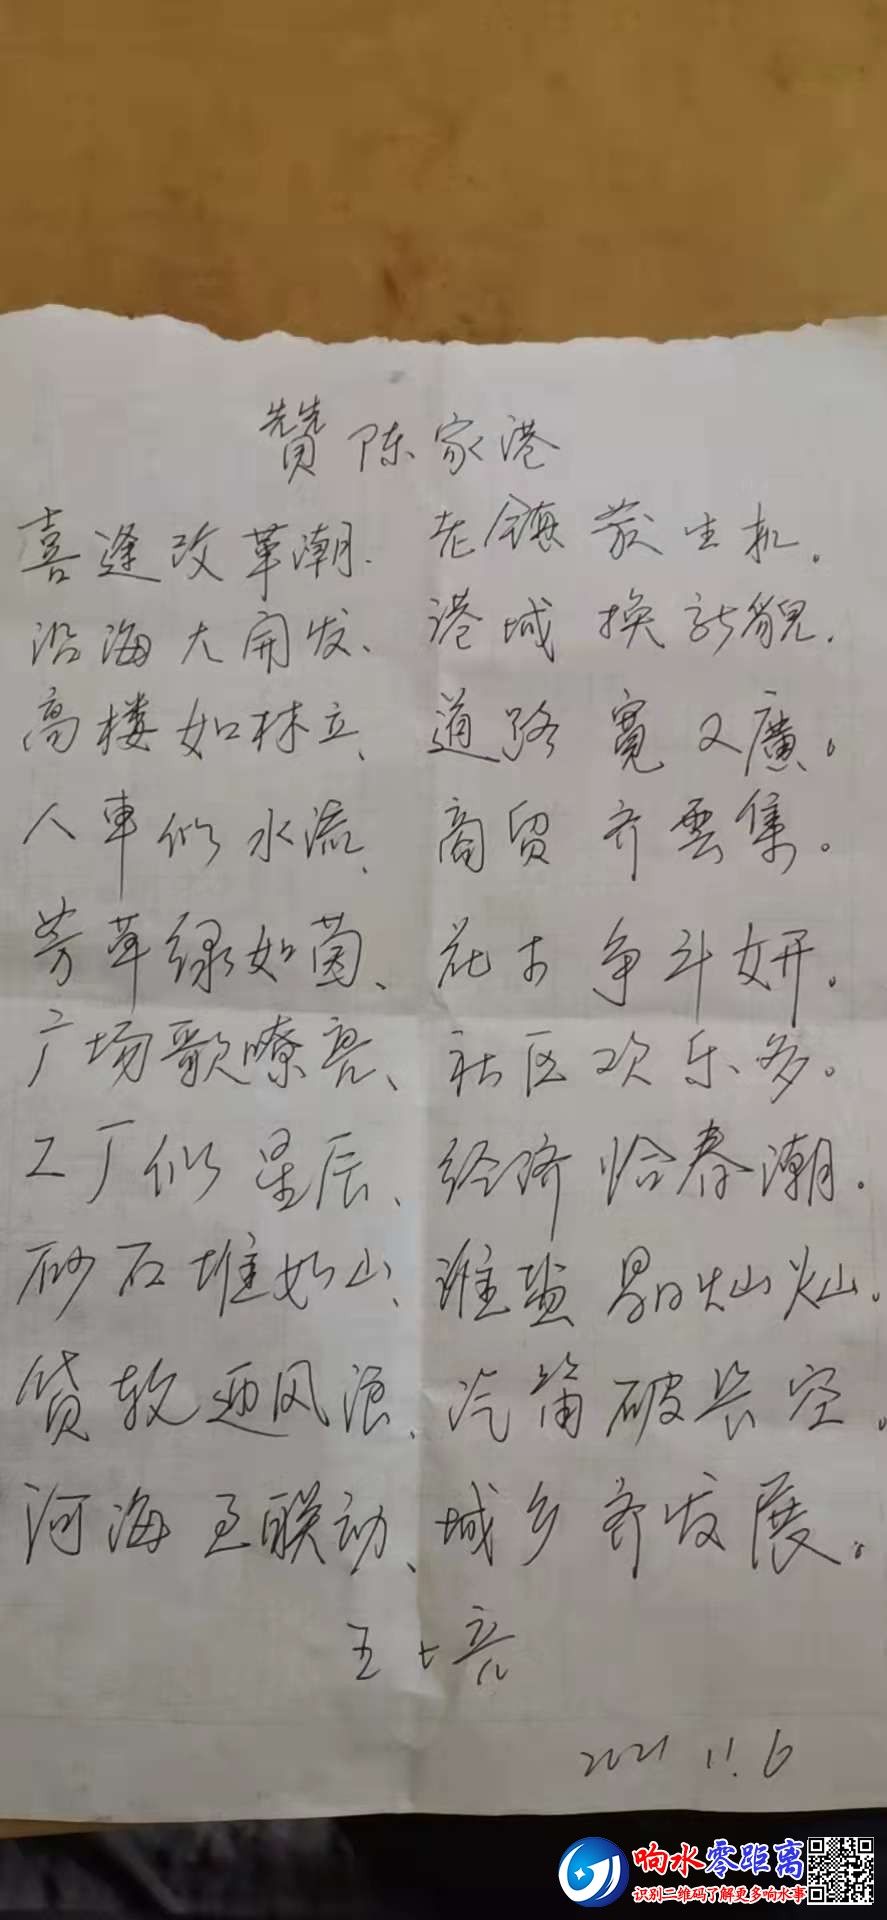 贊陈家港
喜逢改革潮、老镇发生机。
沿海大开发、港城换新貌.
高楼如林立、道路寬又廣。
人車似水流、商贸齐雲集。
芳草绿如茵、花木争斗妍.
广场歌嘹亮、社区欢乐多。
工厂似星辰、经济恰春潮.
砂石堆如山、滩盐晶灿灿。
货轮迎风浪、汽笛破长空。
河海互联动、城乡齐发展。
王
2021 11.6
响水零距离
识别二维码了解更多响水事